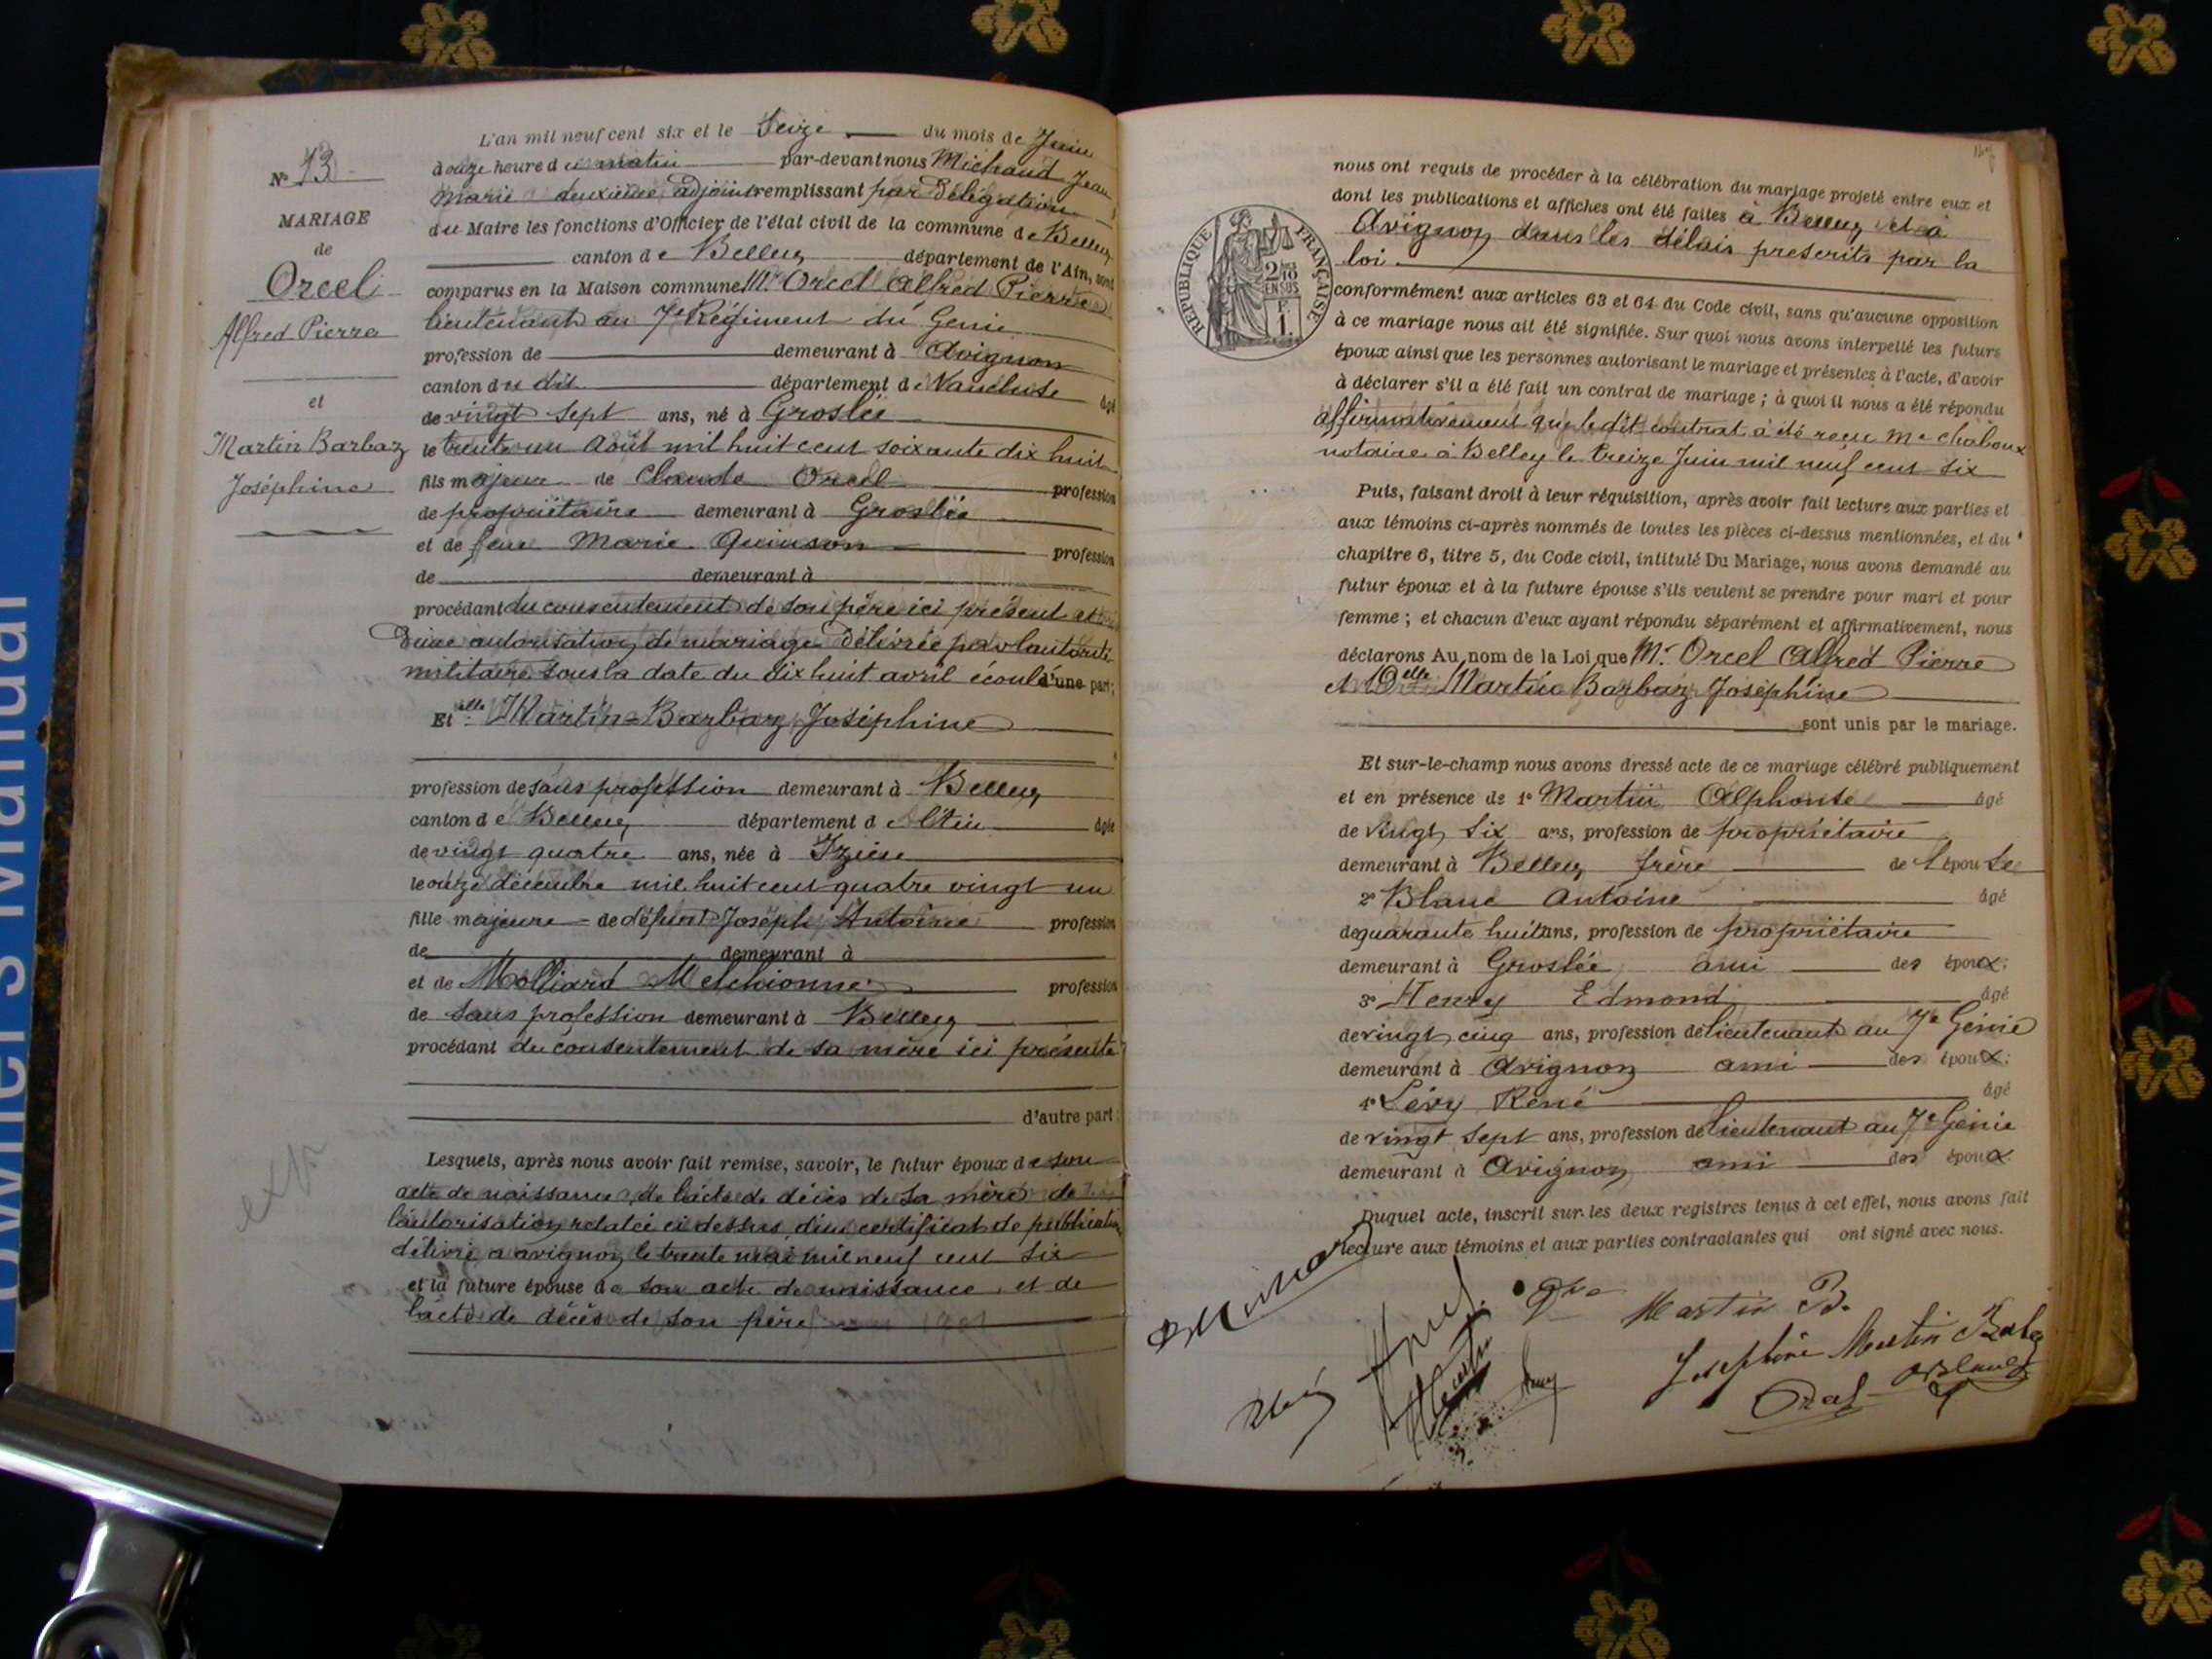 Owner's Manual
N° 13
MARIAGE
de
Orcel
Alfred Pierre
et
Martin Barbaz
Joséphine
L'an mil neuf cent six et le seize du mois de Juin
à onze heure du matin par-devant nous Michaud Jean
Marie deuxième adjoint remplissant par délégation
du Maire les fonctions d'Officier de l'état civil de la commune de Belley
canton de Belley département de l'Ain, sont
comparus en la Maison commune Mr Orcel Alfred Pierre
lieutenant au 7e Régiment du Génie
profession de demeurant à Avignon
canton du dit département de Vaucluse âgé
de vingt sept ans, né à Groslée
le trente un Août mil huit cent soixante dix huit
fils majeur de Claude Orcel profession
de propriétaire demeurant à Groslée
et de feue Marie Quinson profession
de demeurant à
procédant du consentement de son père ici présent et
d'une autorisation de mariage délivrée par l'autorité
militaire sous la date du dix huit avril écoulé d'une part;
Et elle Martin-Barbaz Joséphine
profession de sans profession demeurant à Belley
canton de Belley département de l'Ain âgée
de vingt quatre ans, née à Izieu
le onze décembre mil huit cent quatre vingt un
fille majeure de défunt Joseph Antoine profession
de demeurant à
et de Molliard Melchionne profession
de sans profession demeurant à Belley
procédant du consentement de sa mère ici présente
d'autre part:
Lesquels, après nous avoir fait remise, savoir, le futur époux de son
acte de naissance, de l'acte de décès de sa mère de
l'autorisation relatée ci dessus, d'un certificat de publication
délivré à avignon le trente mai mil neuf cent six
et la future épouse de son acte de naissance et de
l'acte de décès de son père
ext
nous ont requis de procéder à la célébration du mariage projeté entre eux et
dont les publications et affiches ont été faites à Belley et à
Avignon dans les délais prescrits par la
loi.
RÉPUBLIQUE FRANÇAISE
conformément aux articles 63 et 64 du Code civil, sans qu'aucune opposition
à ce mariage nous ait été signifiée. Sur quoi nous avons interpellé les futurs
époux ainsi que les personnes autorisant le mariage et présentes à l'acte, d'avoir
à déclarer s'il a été fait un contrat de mariage; à quoi il nous a été répondu
affirmativement que ledit contrat a été reçu Me Chaboux
notaire à Belley le treize Juin mil neuf cent six
Puis, faisant droit à leur réquisition, après avoir fait lecture aux parties et
aux témoins ci-après nommés de toutes les pièces ci-dessus mentionnées, et du
chapitre 6, titre 5, du Code civil, intitulé Du Mariage, nous avons demandé au
futur époux et à la future épouse s'ils veulent se prendre pour mari et pour
femme; et chacun d'eux ayant répondu séparément et affirmativement, nous
déclarons Au nom de la Loi que Mr Orcel Alfred Pierre
et Delle Martin Barbaz Joséphine
sont unis par le mariage.
Et sur-le-champ nous avons dressé acte de ce mariage célébré publiquement
et en présence de 1° Martin Alphonse âgé
de vingt six ans, profession de propriétaire
demeurant à Belley frère de l'épouse
2° Blanc Antoine âgé
de quarante huit ans, profession de propriétaire
demeurant à Groslée ami des époux;
3° Henry Edmond âgé
de vingt cinq ans, profession de lieutenant au 7e Génie
demeurant à Avignon ami des époux;
4° Lévy René âgé
de vingt sept ans, profession de lieutenant au 7e Génie
demeurant à Avignon ami des époux.
Duquel acte, inscrit sur les deux registres tenus à cet effet, nous avons fait
lecture aux témoins et aux parties contractantes qui ont signé avec nous.
Martin B.
Joséphine Martin Barbaz
Orcel